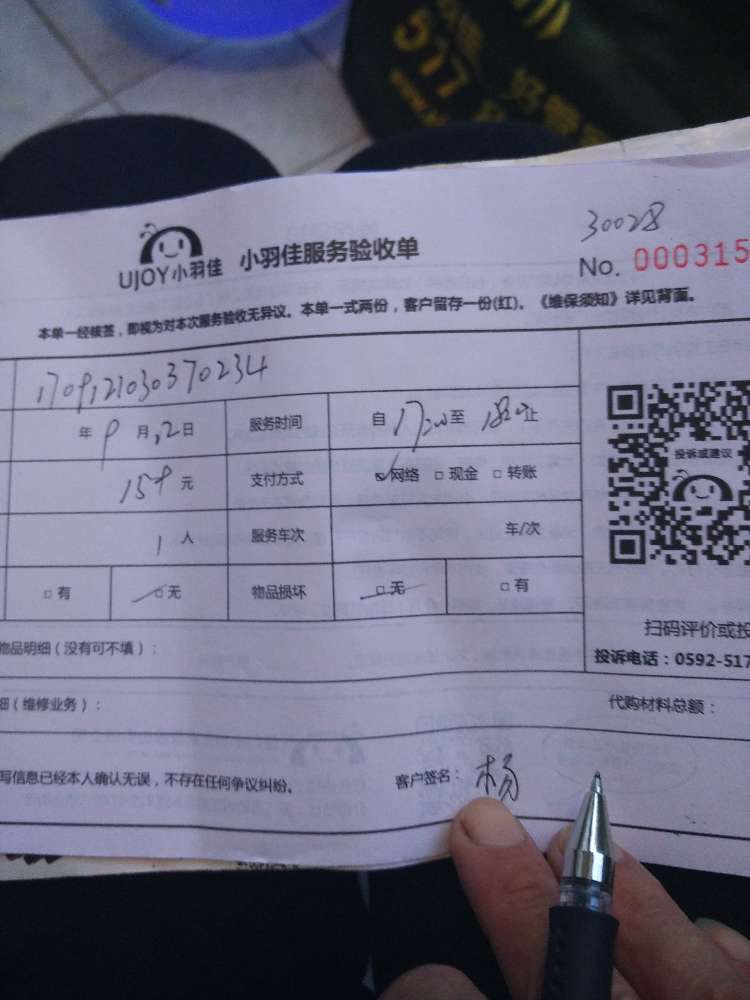 577
30028
UJOY小羽佳 小羽佳服务验收单
No. 000315
本单一经核签，即视为对本次服务验收无异议。本单一式两份，客户留存一份(红)。《维保须知》详见背面。
170912103037 0234
年 9 月 12 日 服务时间 自 17:20 至 18:20 止
159 元 支付方式 ☑网络 □现金 □转账
投诉或建议
1 人 服务车次 车/次
□有 □无 物品损坏 □无 □有
扫码评价或投
物品明细（没有可不填）：
投诉电话：0592-517
细（维修业务）： 代购材料总额：
写信息已经本人确认无误，不存在任何争议纠纷。 客户签名：杨